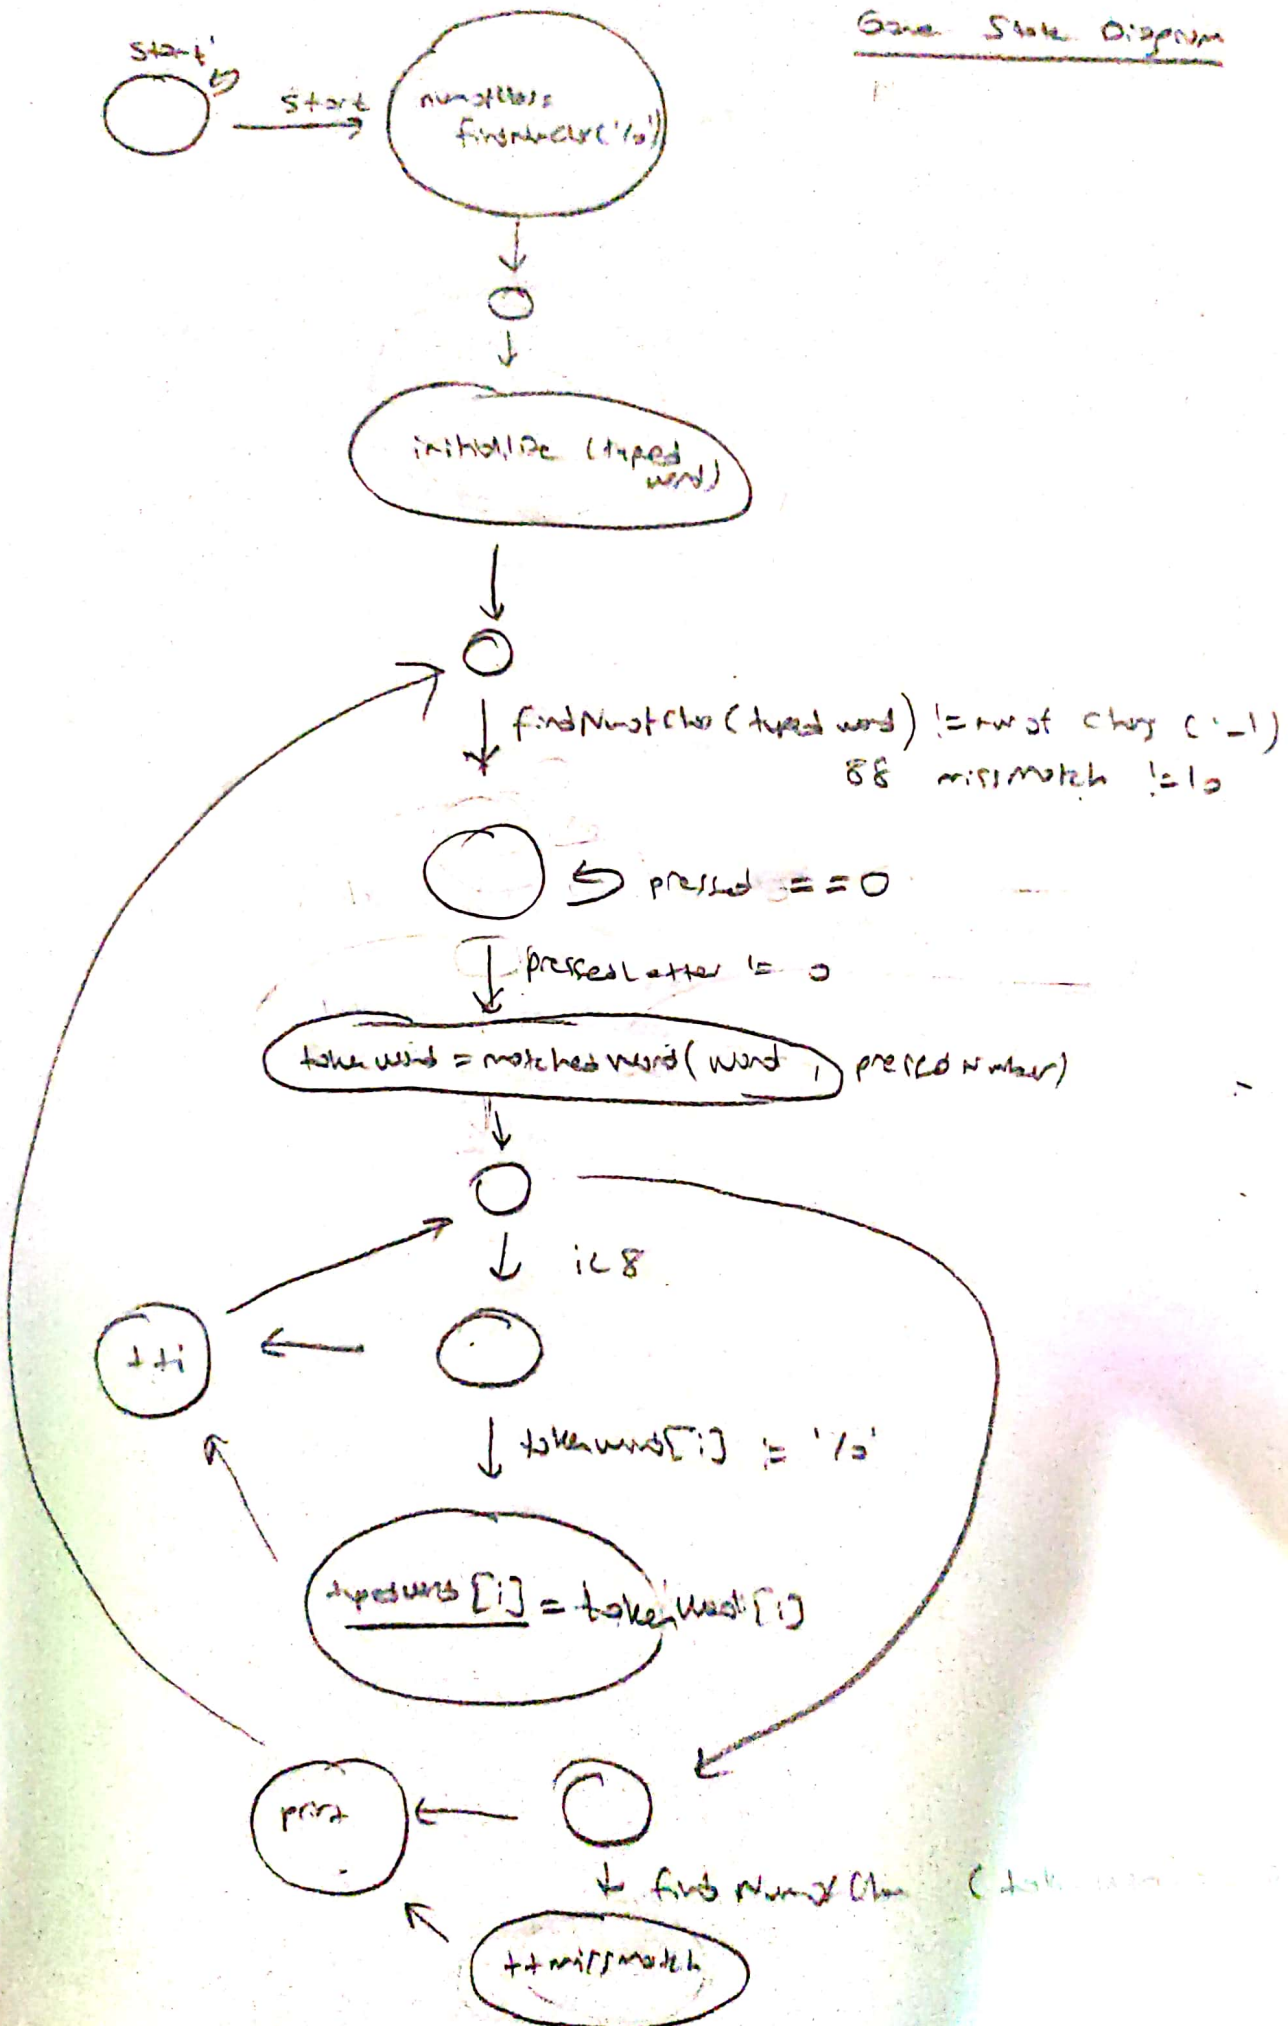 Game State Diagram
start'
start
numofchars
findNumChr('/0')
initialize (typed
word)
findNumofChar(typed word) != num of chars ('-1)
&& missmatch != 10
pressed == 0
pressedLetter != 0
taken word = matched word( word , pressed Number)
i < 8
++i
taken word[i] != '/0'
typed word [i] = taken word [i]
print
find Num of Char (
++missmatch